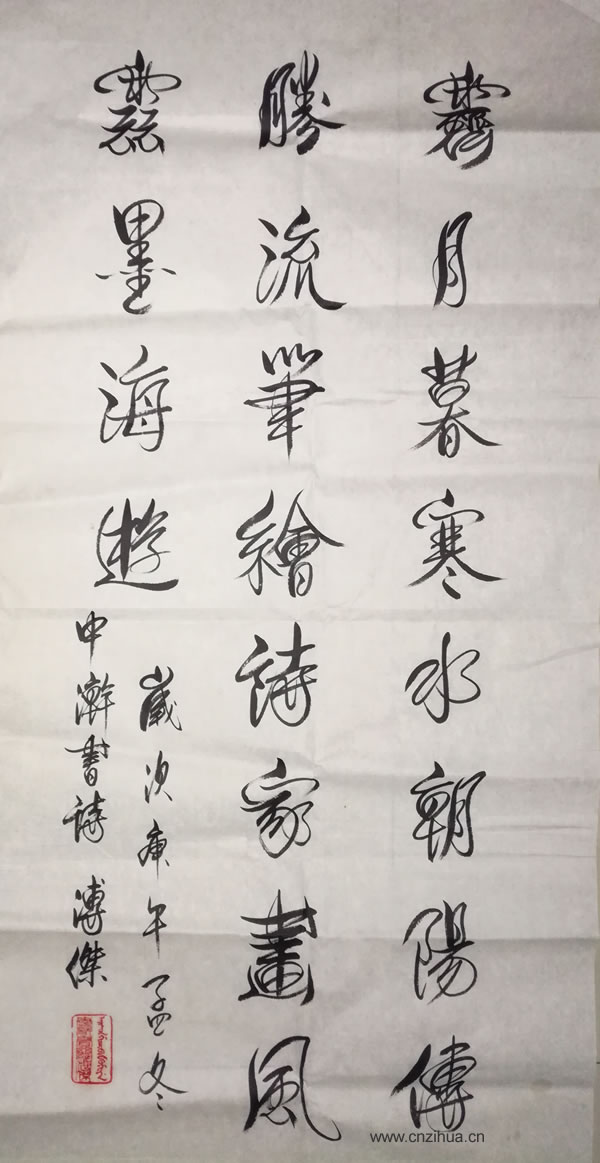 霽月暮寒水朝陽傳
勝流筆繪詩家畫風
墨海遊
歲次庚午孟冬
中澣書詩 溥傑
www.cnzihua.cn